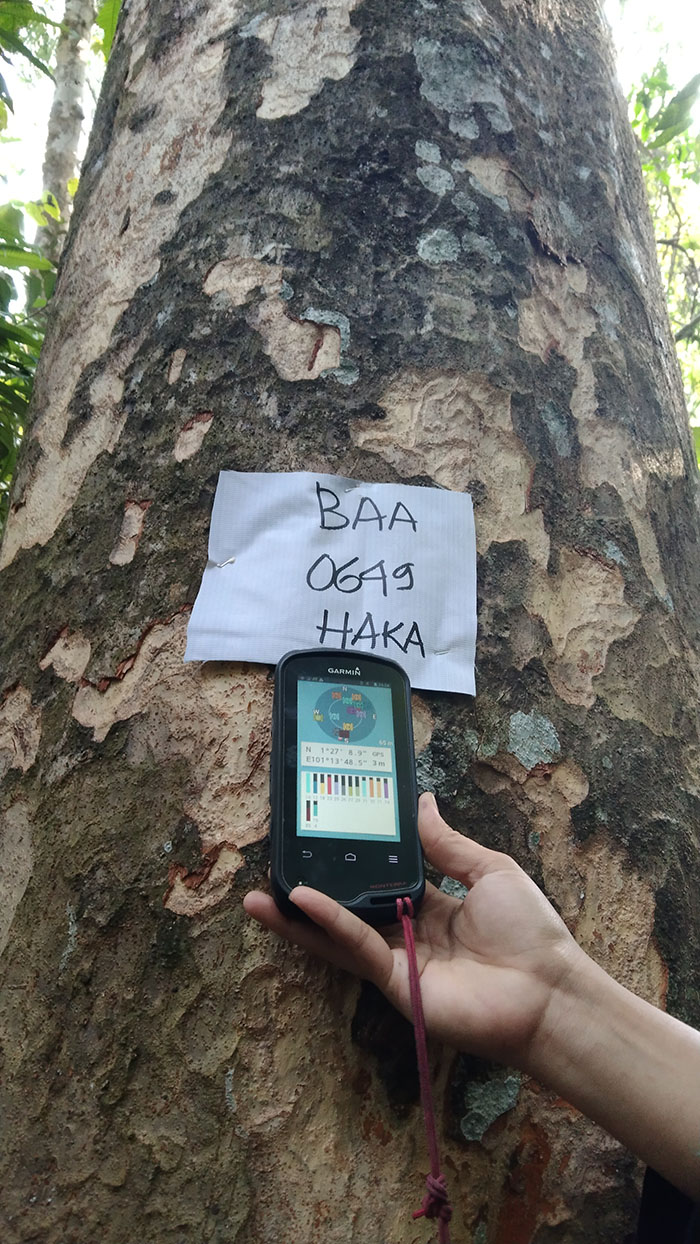 BAA
0649
HAKA
GARMIN
N
W
E
65 m
N 1°27' 8.9" GPS
E101°13'48.5" 3m
MONTERRA